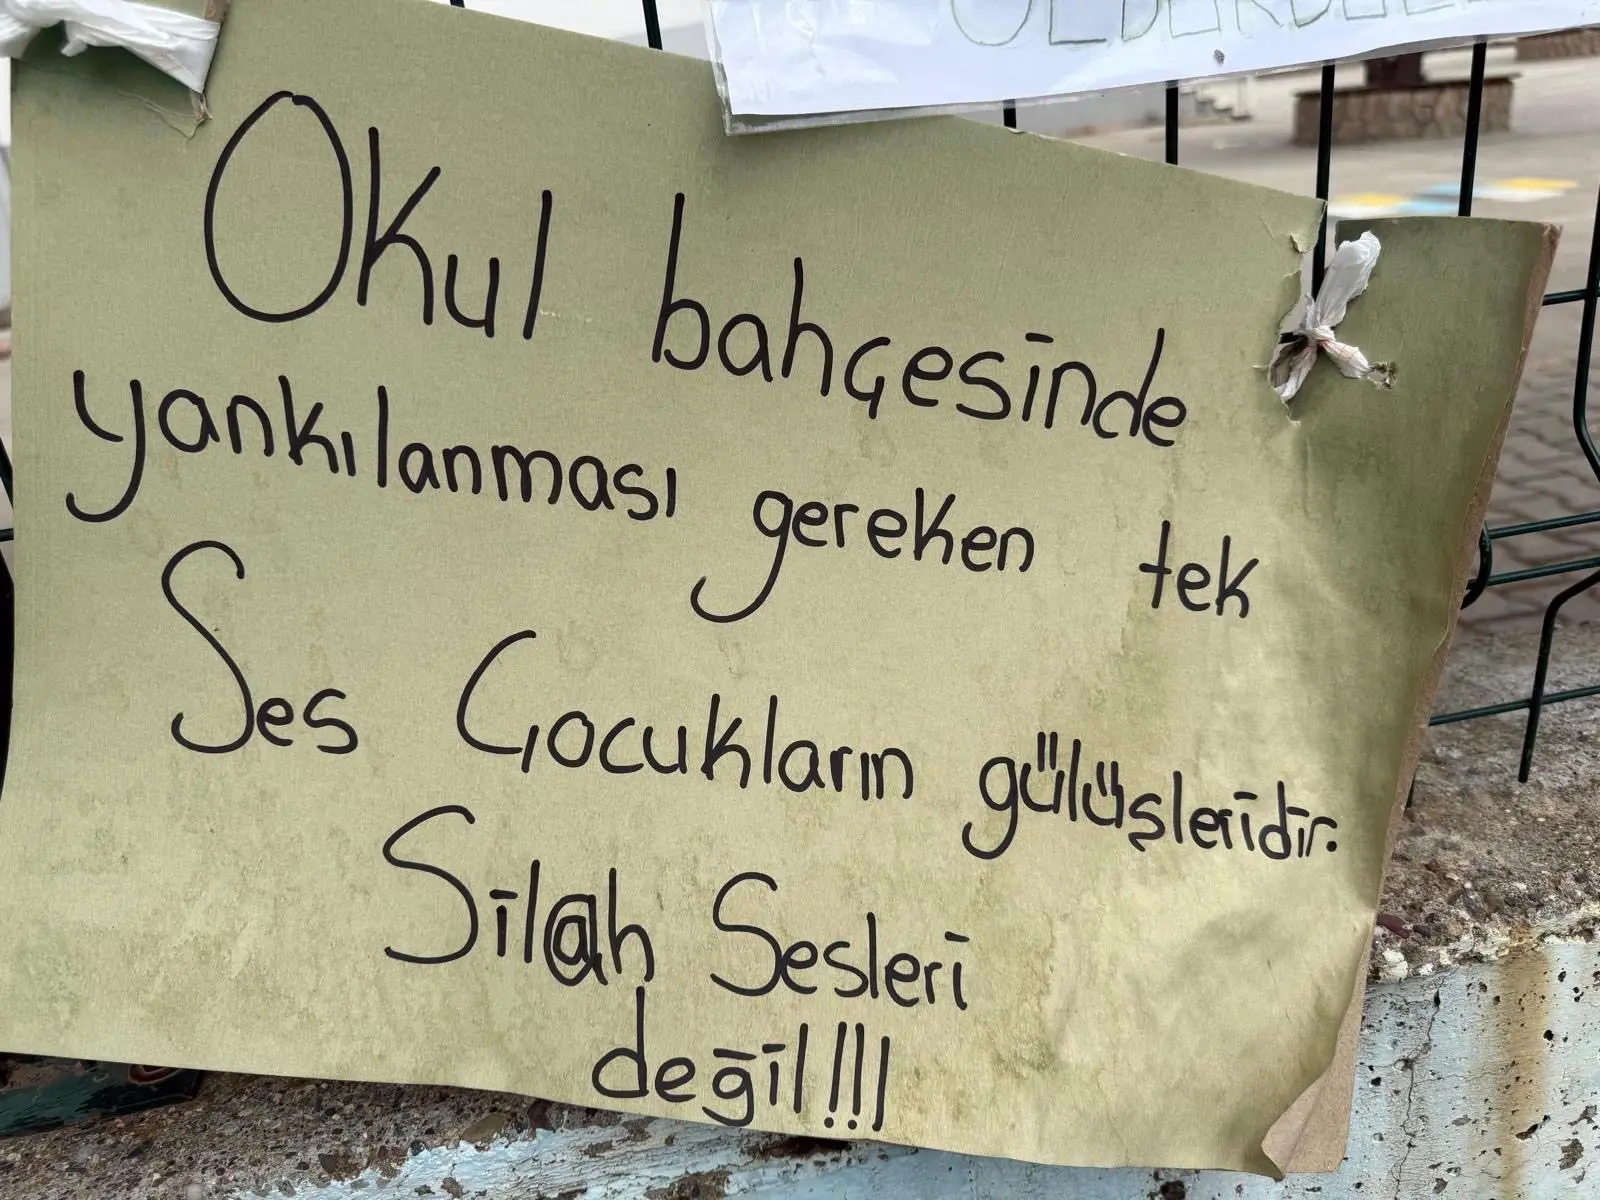 Okul bahçesinde
yankılanması gereken tek
Ses Çocukların gülüşleridir.
Silah Sesleri
değil!!!